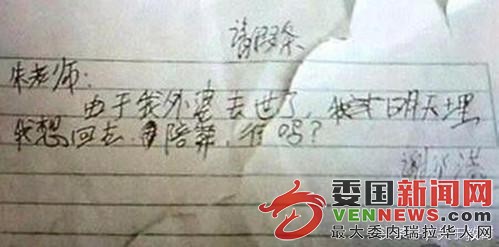 请假条
朱老师:
由于我外婆去世了,我 明天埋
我想回去 陪葬,行吗?
谢
委国新闻网
VENNEWS.COM
最大委内瑞拉华人网